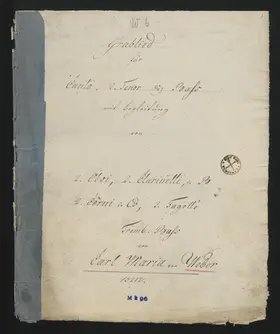 No 6
Grablied
für
Canto, 2 Tenor u. Bass
mit Begleitung
von
2. Oboi, 2. Clarinetti, in B
2. Corni in Es, 2. Fagotti
Tromb. Basso
von
Carl Maria von Weber